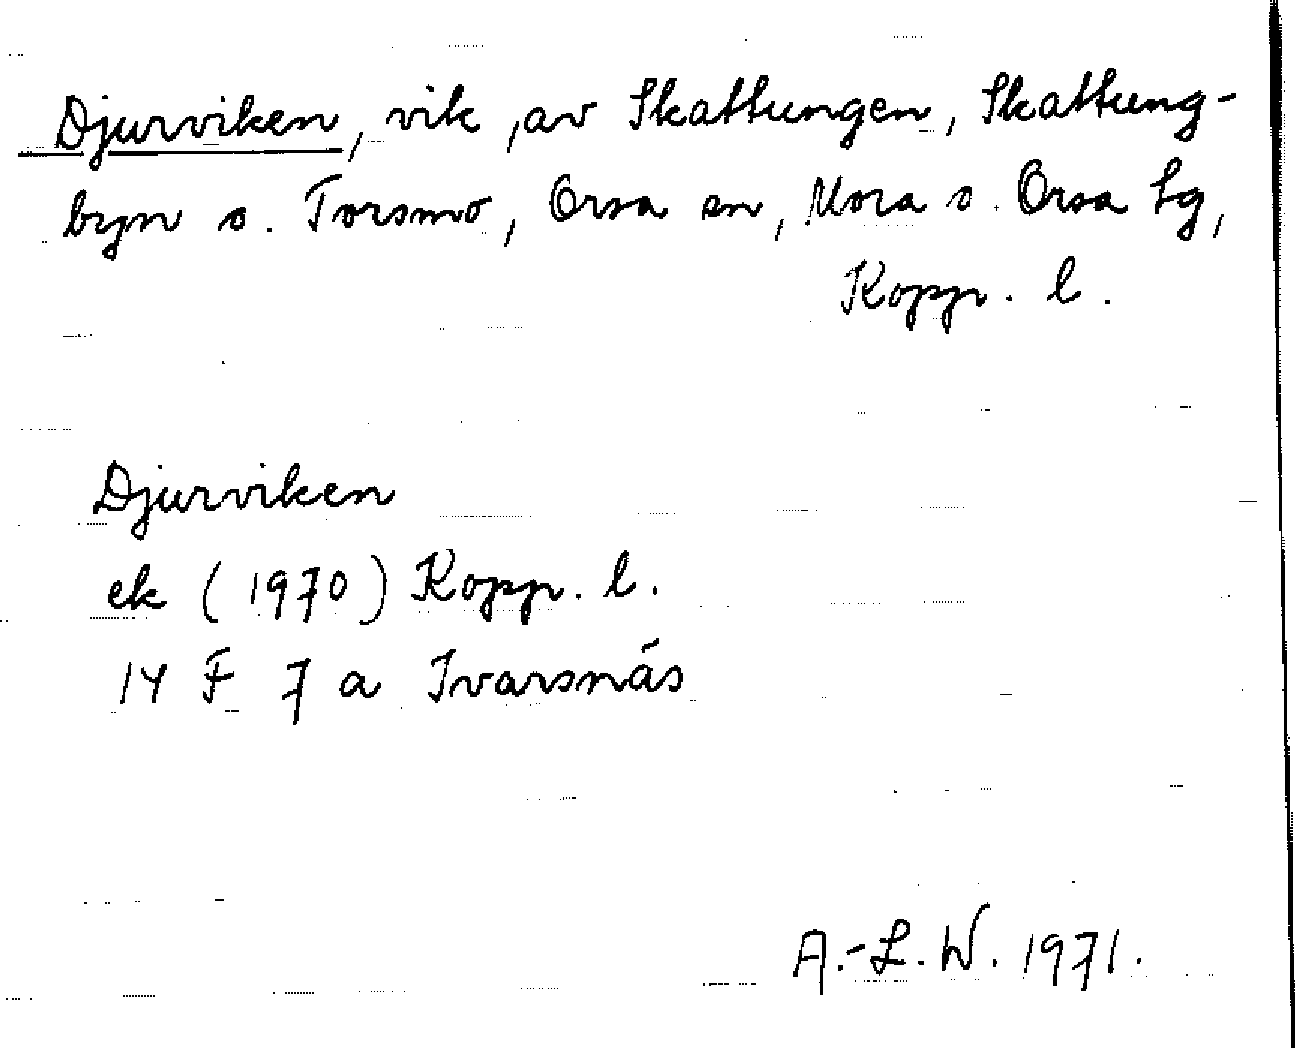 Djurviken, vik ,av Skattungen, Skattung-
byn o. Torsmo, Orsa sn, Mora o. Orsa tg,
Kopp. l.
Djurviken
ek (1970) Kopp. l.
14 F 7 a Ivarsnäs
A.-L. W. 1971.